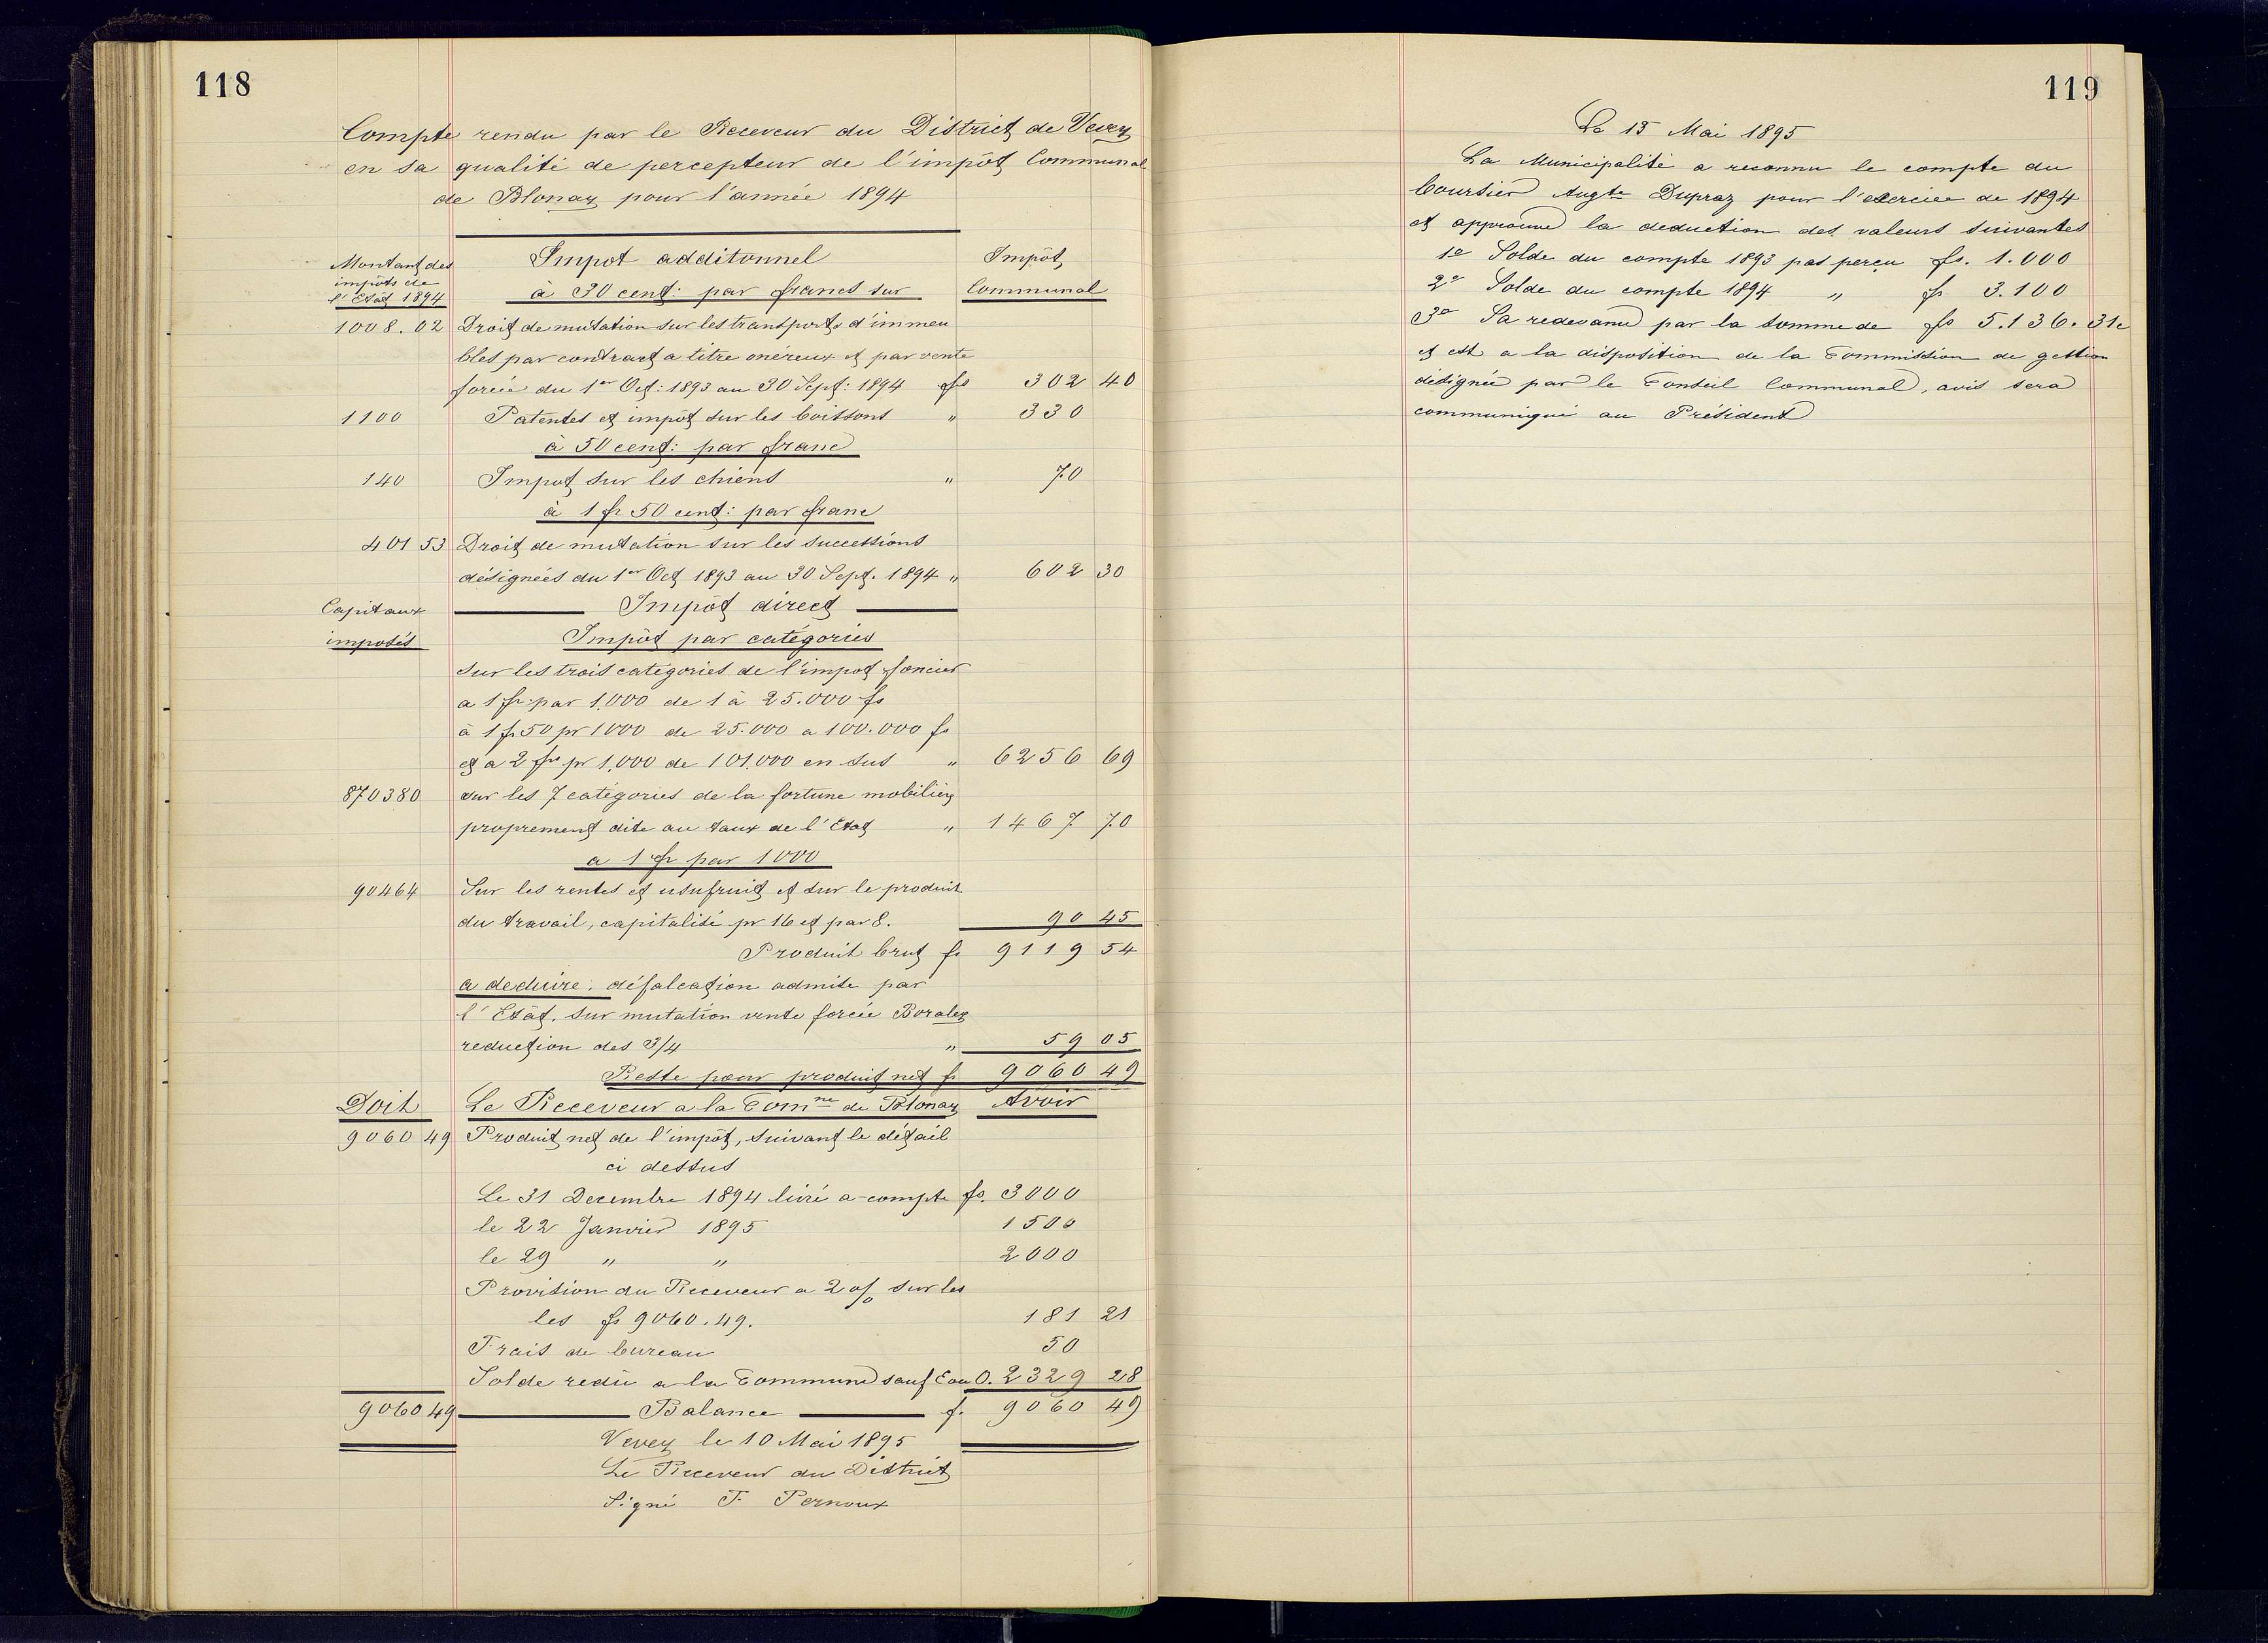 118
Compte rendu par le Receveur du District de Vevey
en sa qualité de percepteur de l'impôt Communal
de Blonay pour l'année 1894
Montant des impôts de l'Etat 1894
Impot additonnel
à 30 cent: par francs sur
Impôt Communal
1008.02 Droit de mutation sur les transports d'immeu
bles par contract a titre onéreux et par vente
forcée du 1er Oct: 1893 au 30 Sept: 1894 frs 302 40
1100 Patentes et impôt sur les boissons " 330
à 50 cent: par franc
140 Impot sur les chiens " 70
à 1 fr 50 cent: par franc
401 53 Droit de mutation sur les successions
désignées du 1er Oct 1893 au 30 Sept. 1894 " 602 30
Capitaux imposés
Impôt direct
Impôt par catégories
Sur les trois catégories de l'impot foncier
a 1 fr par 1.000 de 1 à 25.000 fs
à 1 fr 50 pr 1000 de 25.000 a 100.000 fs
et a 2 frs pr 1.000 de 101.000 en sus " 6256 69
870380 sur les 7 catégories de la fortune mobilière
proprement dite au taux de l'Etat " 1467 70
a 1 fr par 1000
90464 Sur les rentes et usufruit et sur le produit
du travail, capitalisé pr 16 et par 8. 90 45
Produit brut fs 9119 54
a deduire. défalcation admise par
l'Etat. sur mutation vente forcée Boraley
reduction des 3/4 " 59 05
Reste pour produit net fr 9060 49
Doit Le Receveur a la Comne de Blonay Avoir
9060 49 Produit net de l'impôt, suivant le détail
ci dessus
Le 31 Decembre 1894 livré a-compte fs. 3000
le 22 Janvier 1895 1500
le 29 " " 2000
Provision du Receveur a 2 o/o sur les
les fs 9060.49. 181 21
Frais de bureau 50
Solde redu a la Commune sauf E ou O. 2329 28
9060 49 Balance f. 9060 49
Vevey le 10 Mai 1895
Le Receveur du District
Signé F. Pernoux
119
Le 15 Mai 1895
La Municipalité a reconnu le compte du
boursier Augte Dupraz pour l'exercice de 1894
et approuve la deduction des valeurs suivantes
1o Solde du compte 1893 pas perçu fs. 1.000
2o Solde du compte 1894 " fs 3.100
3o Sa redevance par la somme de fs 5.136.31c
et est a la disposition de la Commission de gestion
désignée par le Conseil Communal, avis sera
communiqué au Président